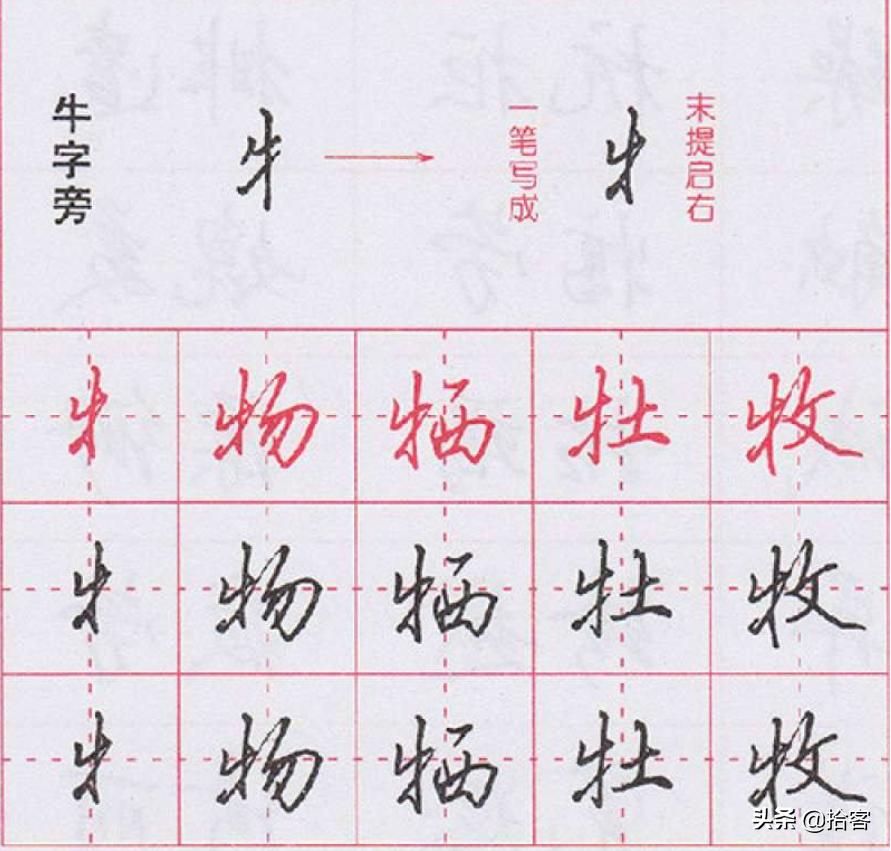 牛字旁
牜
一笔写成
牜
末提启右
牜 物 牺 牡 牧
牜 物 牺 牡 牧
牜 物 牺 牡 牧
头条 @拾客